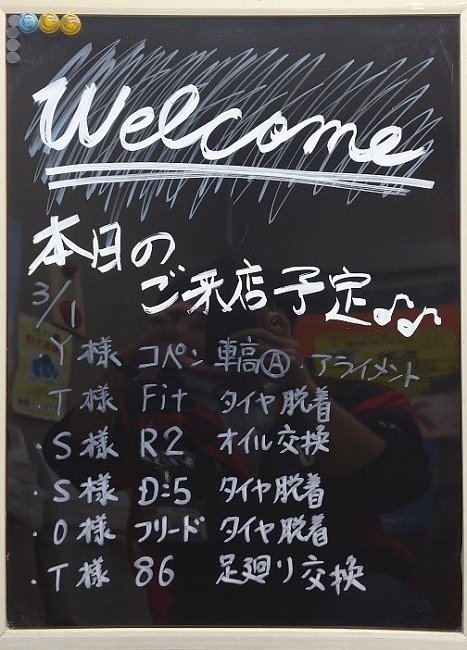 Welcome
本日の
ご来店予定♪♫
3/1
Y様 コペン 車高Ⓐ・アライメント
・T様 Fit タイヤ脱着
・S様 R2 オイル交換
・S様 D:5 タイヤ脱着
・O様 フリード タイヤ脱着
・T様 86 足廻り交換